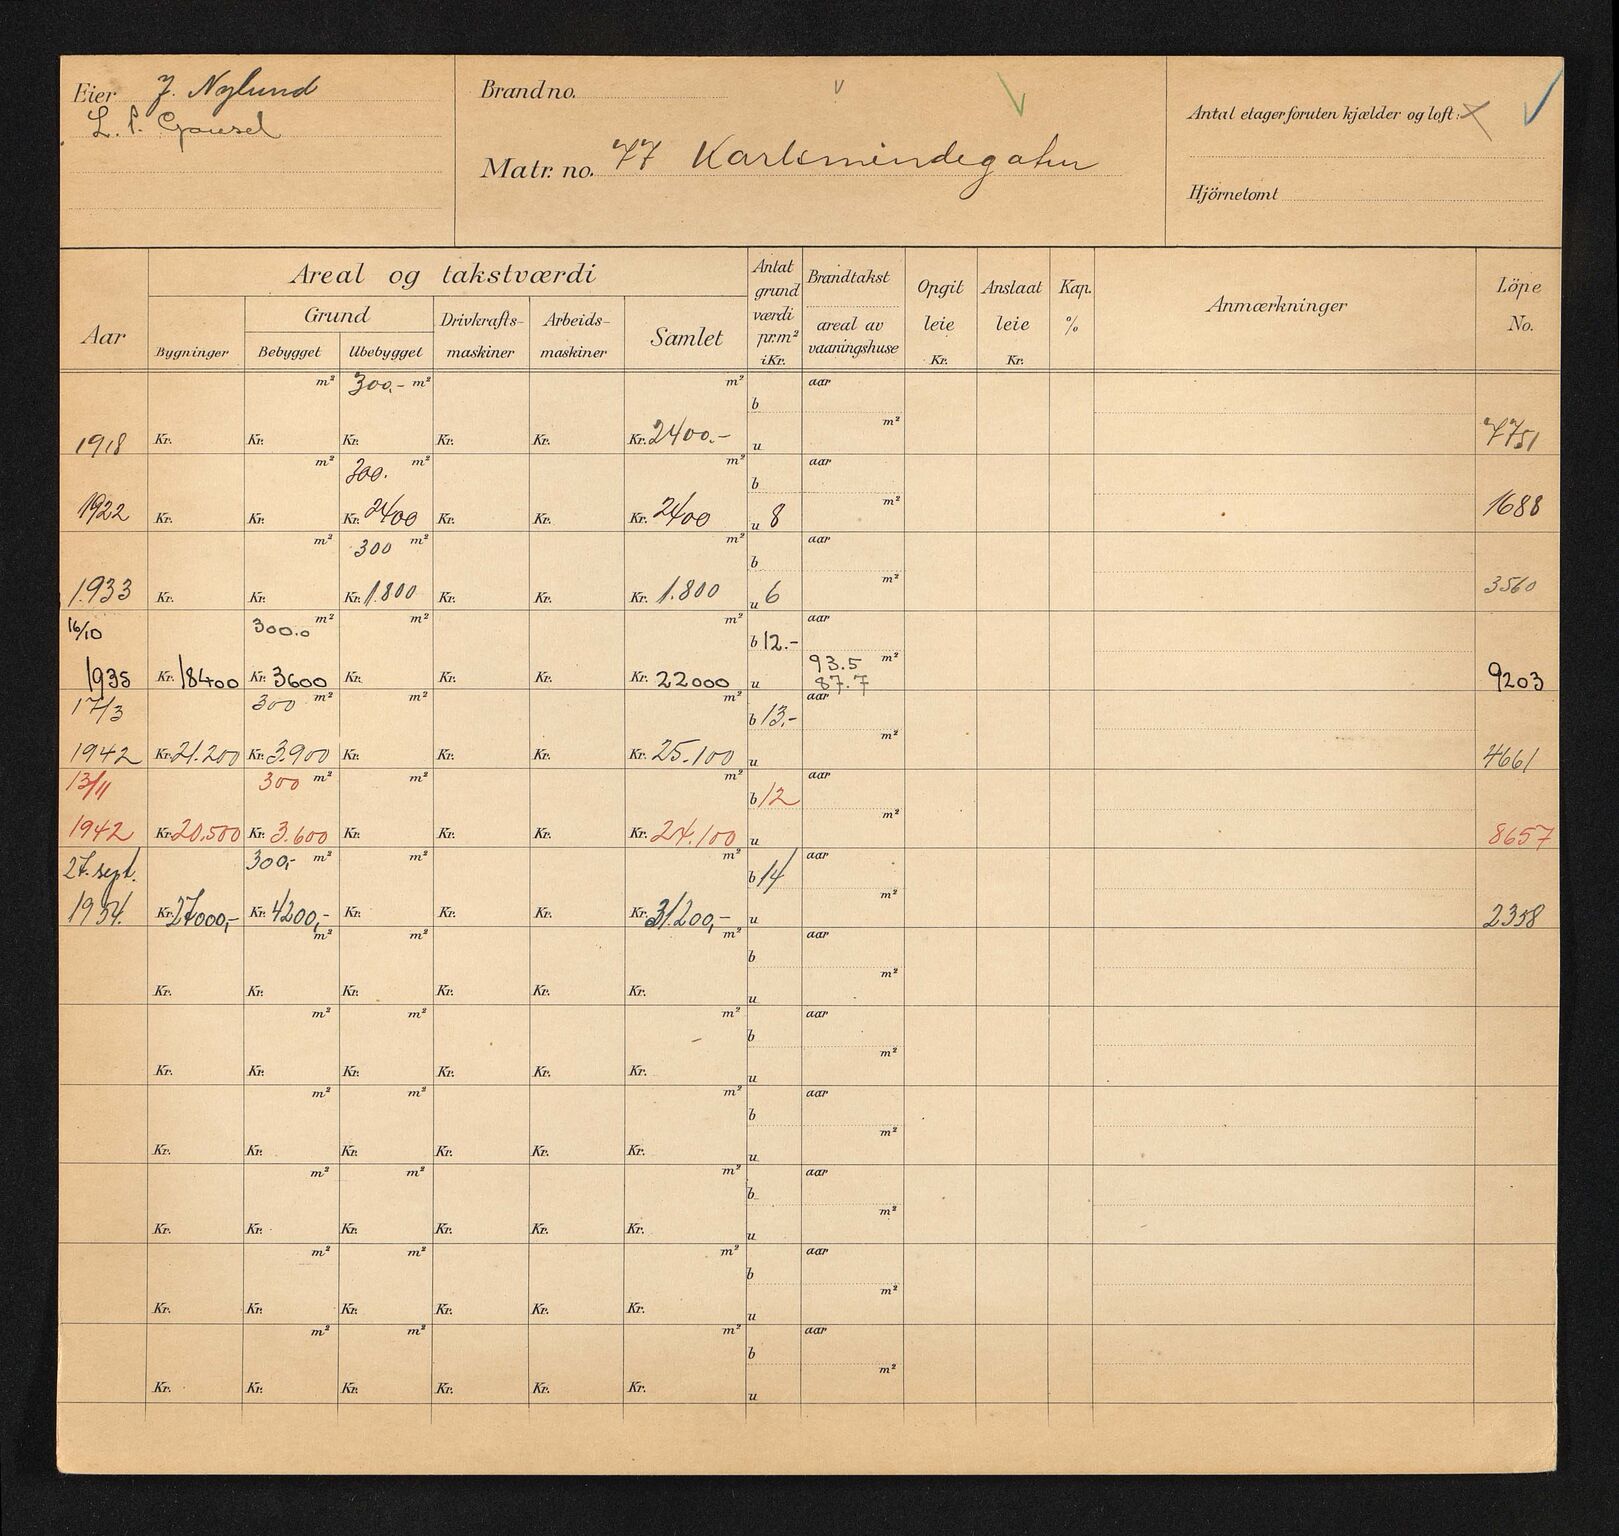 Eier J. Nylund
L. P. Gausel
Brandno.
Matr. no. 77 Karlsmindegaten
Antal etager foruten kjælder og loft:
Hjörnetomt
Aar
Areal og takstværdi
Bygninger
Grund
Bebygget
Ubebygget
Drivkrafts-
maskiner
Arbeids-
maskiner
Samlet
Antat
grund
værdi
pr.m²
i Kr.
Brandtakst
areal av
vaaningshuse
Opgit
leie
Kr.
Anslaat
leie
Kr.
Kap.
%
Anmærkninger
Löpe
No.
m² 300,- m² m² aar
b
m²
1918 Kr. Kr. Kr. Kr. Kr. Kr. 2400.- u 7751
m² 300. m² m² aar
b
m²
1922 Kr. Kr. Kr. 2400 Kr. Kr. Kr. 2400 u 8 1688
m² 300 m² m² aar
b
m²
1933 Kr. Kr. Kr. 1.800 Kr. Kr. Kr. 1.800 u 6 3560
16/10 300.0 m² m² m² aar
b 12.-
93.5 m²
1935 Kr. 18400 Kr. 3600 Kr. Kr. Kr. Kr. 22000 u 87.7 9203
17/3 300 m² m² m² aar
b 13.-
m²
1942 Kr. 21.200 Kr. 3.900 Kr. Kr. Kr. Kr. 25.100 u 4661
13/11 300 m² m² m² aar
b 12
m²
1942 Kr. 20.500 Kr. 3.600 Kr. Kr. Kr. Kr. 24.100 u 8657
27. sept. 300,- m² m² m² aar
b 14
m²
1954. Kr. 27000,- Kr. 4200,- Kr. Kr. Kr. Kr. 31.200,- u 2358
m² m² m² aar
b
m²
Kr. Kr. Kr. Kr. Kr. Kr. u
m² m² m² aar
b
m²
Kr. Kr. Kr. Kr. Kr. Kr. u
m² m² m² aar
b
m²
Kr. Kr. Kr. Kr. Kr. Kr. u
m² m² m² aar
b
m²
Kr. Kr. Kr. Kr. Kr. Kr. u
m² m² m² aar
b
m²
Kr. Kr. Kr. Kr. Kr. Kr. u
m² m² m² aar
b
m²
Kr. Kr. Kr. Kr. Kr. Kr. u